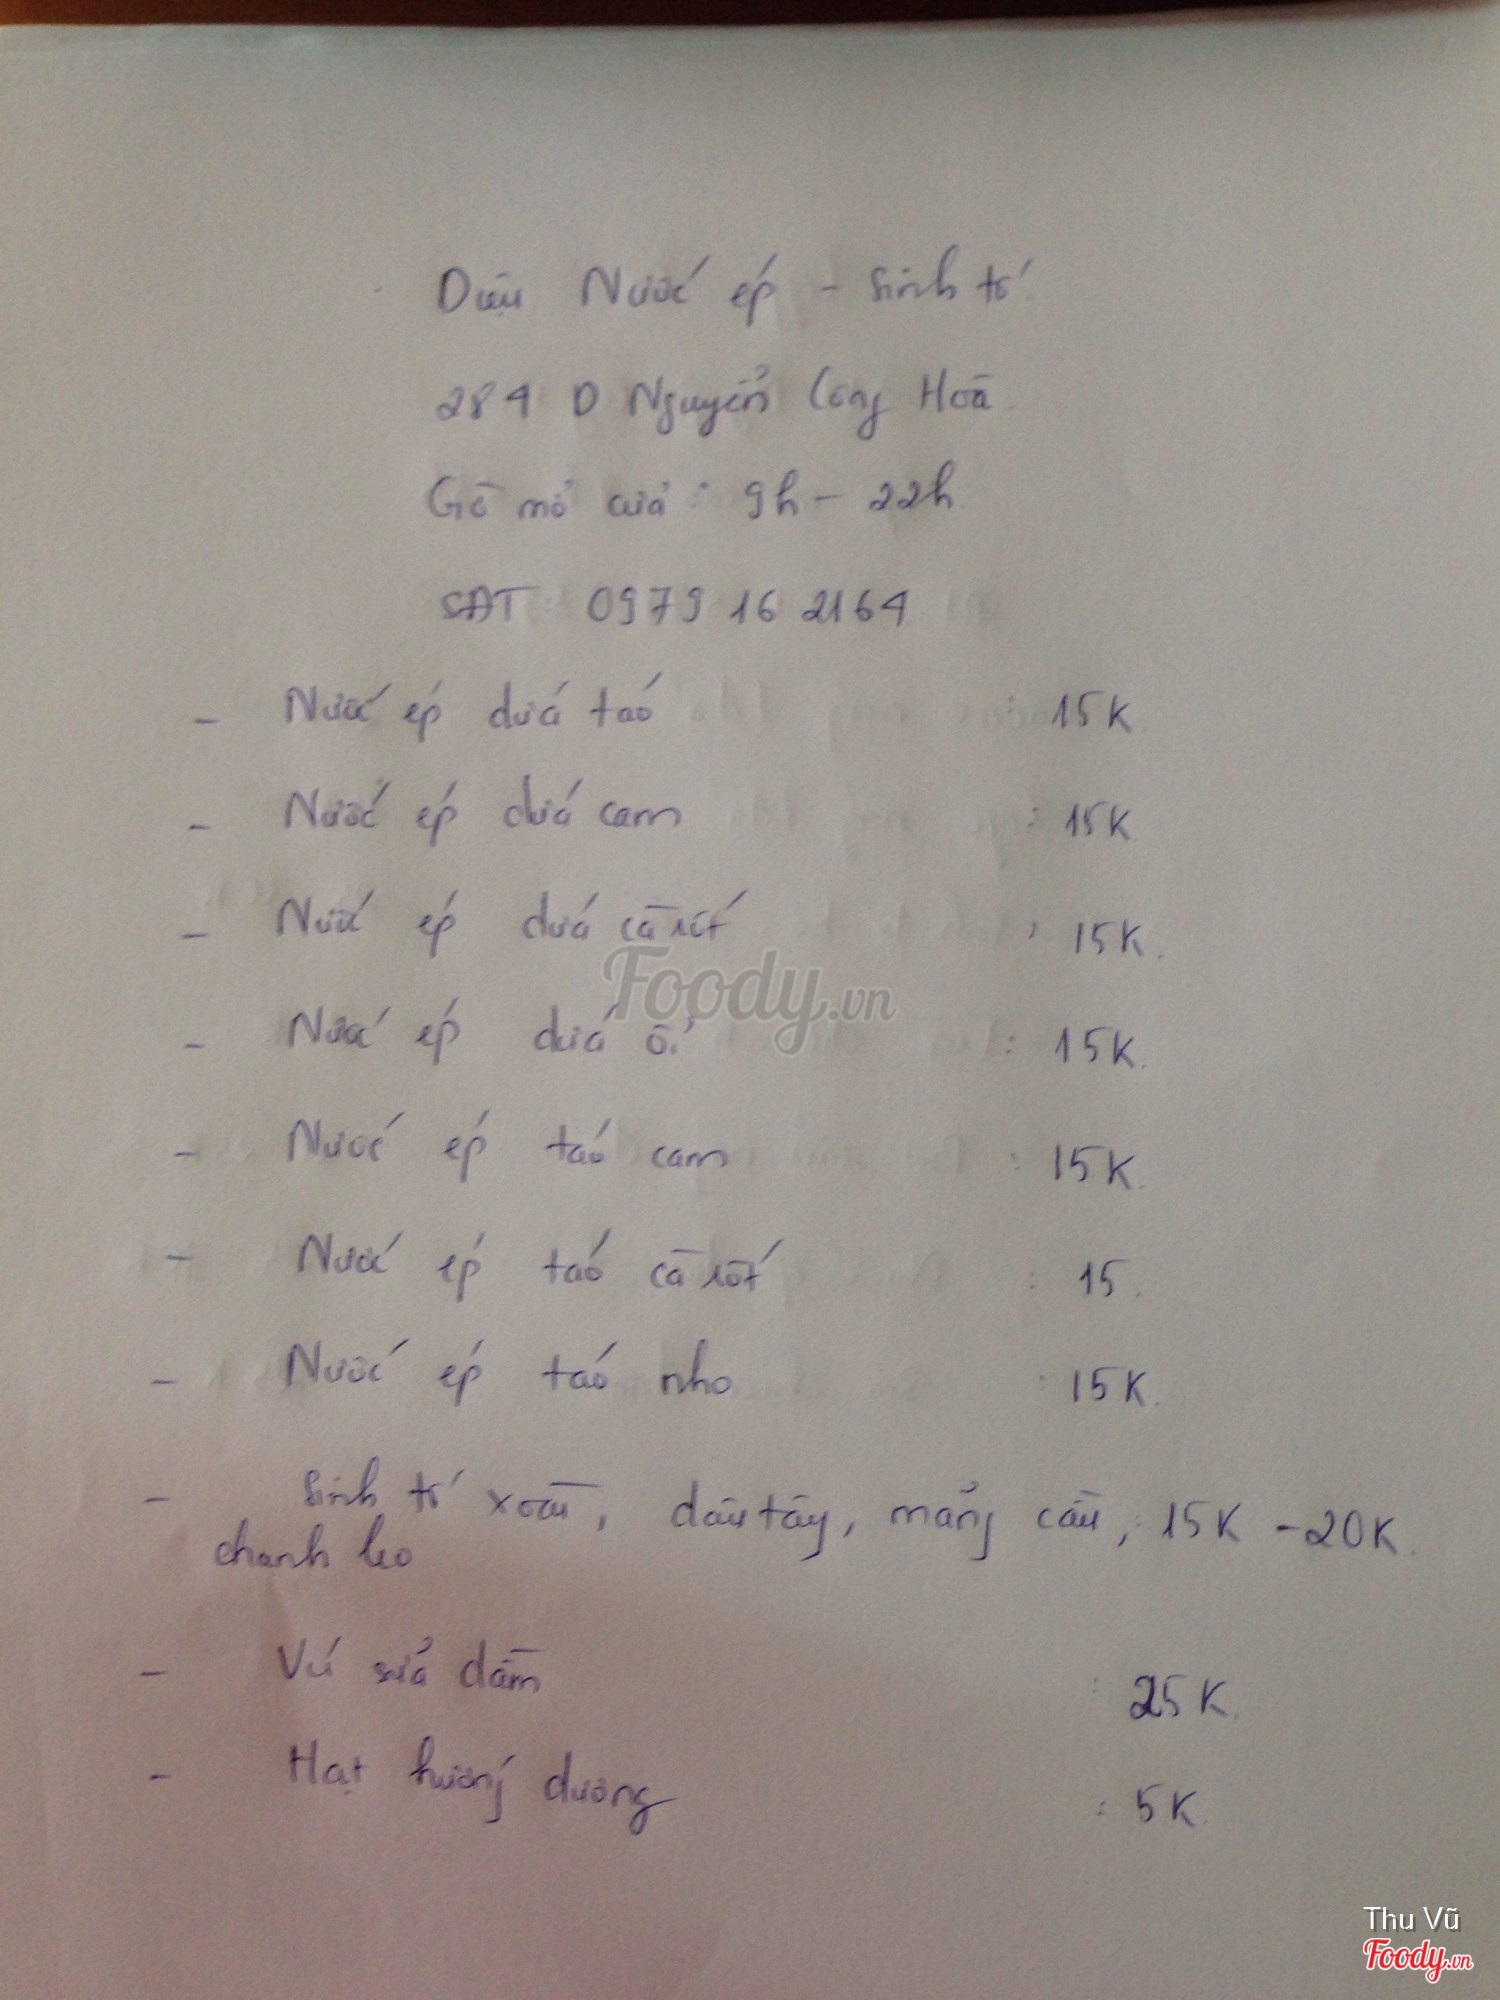 Diệu Nước ép - Sinh tố
284 D Nguyễn Công Hoà
Gờ mở cửa : 9h - 22h
SĐT : 0979 16 2164
- Nước ép dứa táo : 15K
- Nước ép dứa cam : 15K
- Nước ép dứa cà rốt : 15K.
- Nước ép dứa ổi : 15K.
- Nước ép táo cam : 15K.
- Nước ép táo cà rốt : 15.
- Nước ép táo nho : 15K.
- Sinh tố xoài, dâu tây, mãng cầu, : 15K - 20K.
chanh leo
- Vú sữa dầm : 25K.
- Hạt hướng dương : 5K.
Foody.vn
Thu Vũ
Foody.vn